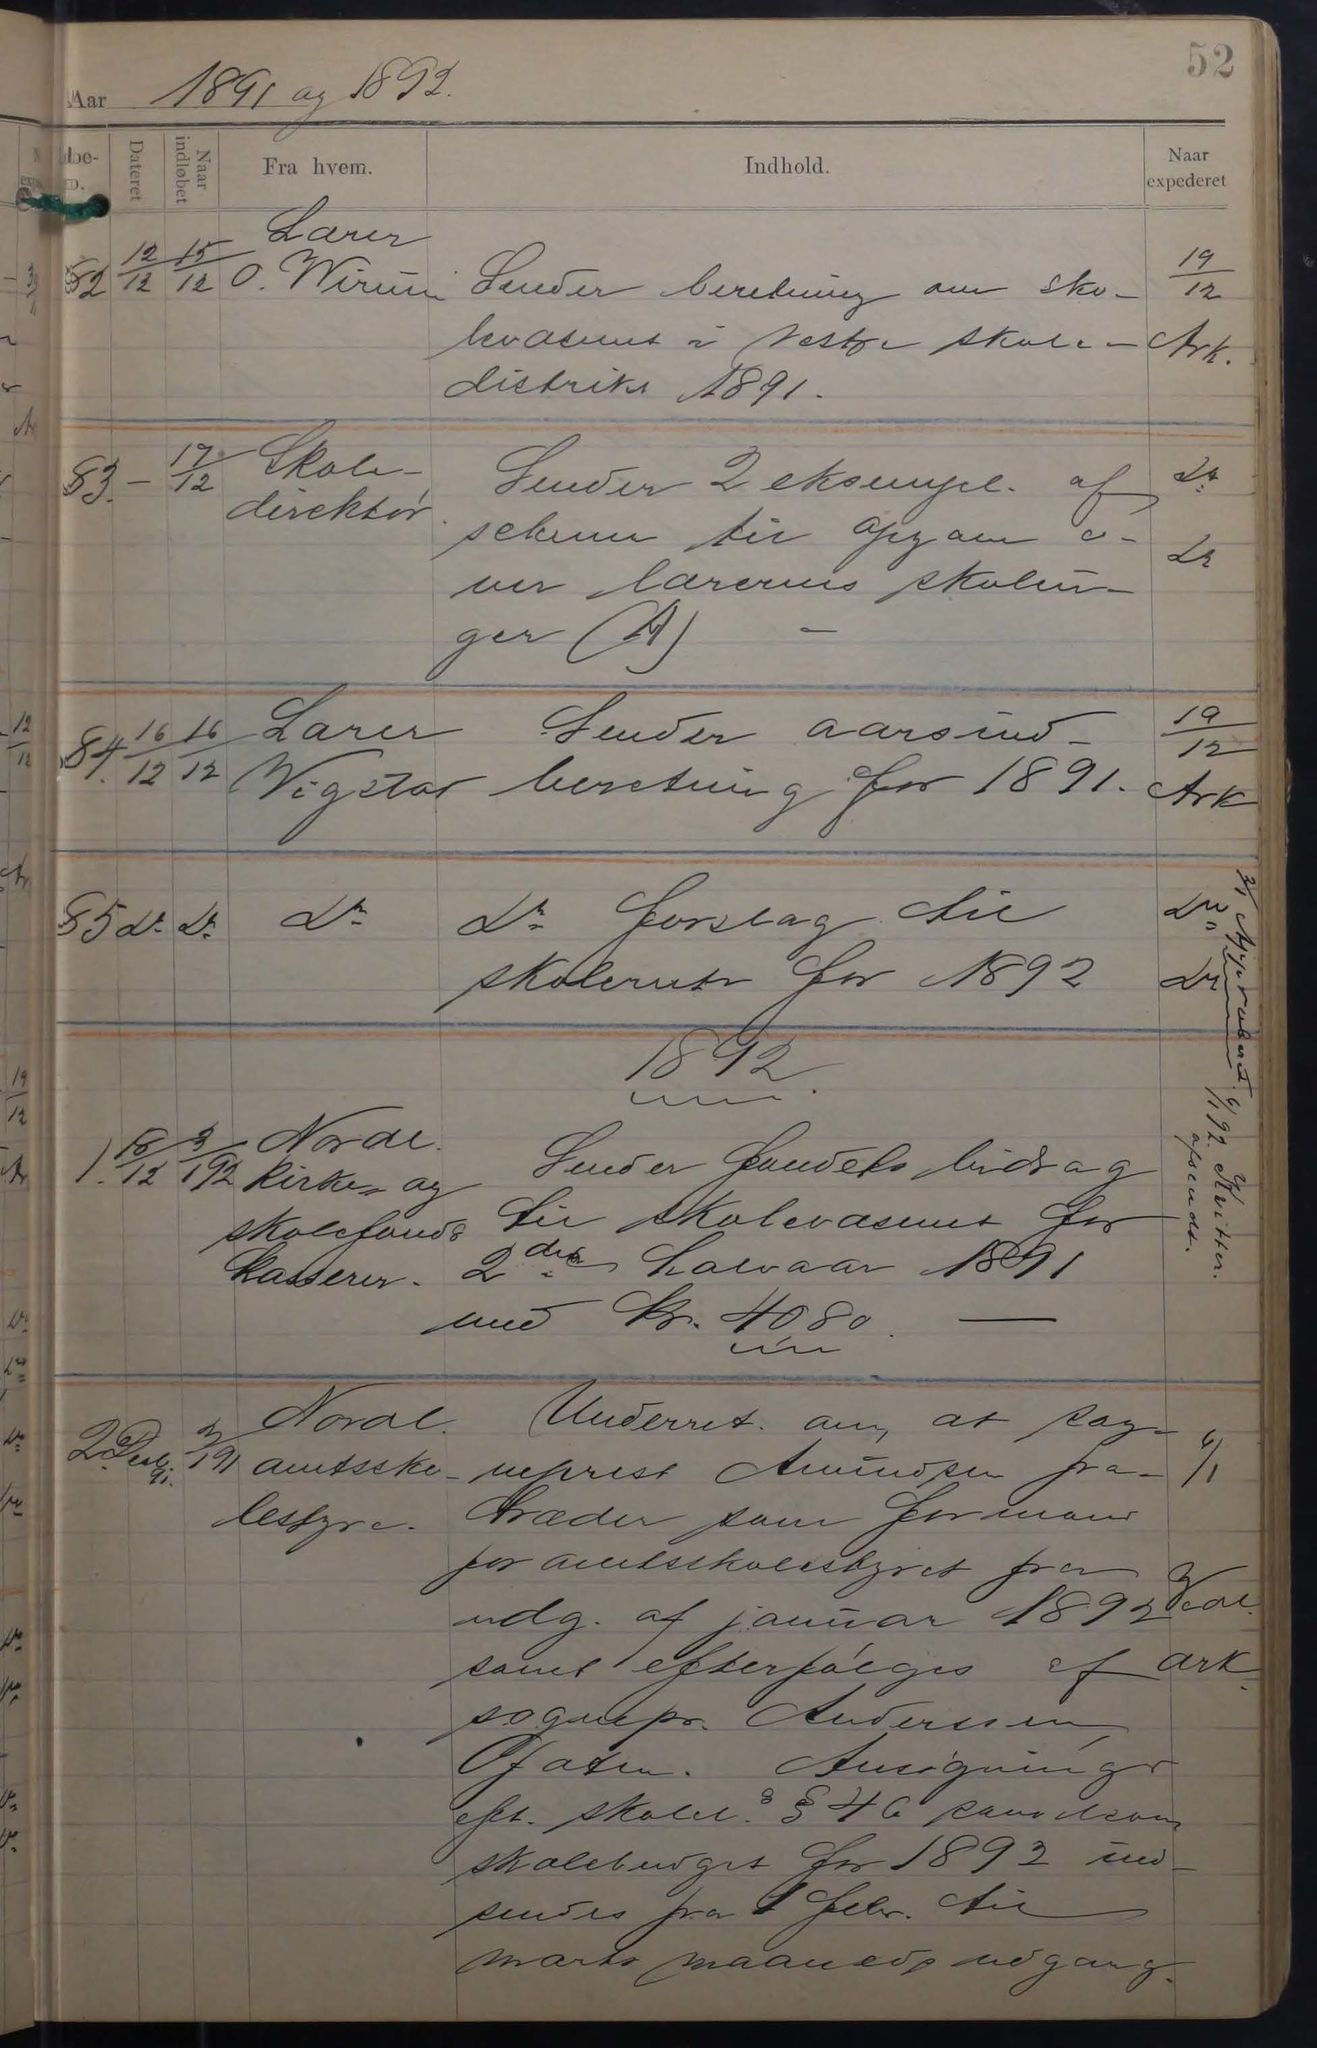 52
Aar 1891 og 1892.
Dateret
Naar indløbet
Fra hvem.
Indhold.
Naar expederet
82 12/12 15/12 Lærer O. Wirum Sender beretning om sko-
levæsenet i Vestre skole-
distrikt 1891.
19/12 Ark.
83. – 17/12 Skole-
direktør. Sender 2 eksempl. af
schema til opgave o-
ver lærernes skolin-
ger (A) –
Do
Do
84. 16/12 16/12 Lærer Vigstad Sender aarsind-
beretning for 1891.
19/12 Ark
85 Do Do Do Do forslag til
skoleruter for 1892
Do
Do
Approberet 6/1 92.
1892.
1. 18/12 3/1 92 Nordl.
kirke- og
skolefonds
kasserer.
Sender fondets bidrag
til skolevæsenet for
2det halvaar 1891
med kr. 40 80. —
Kvitter.
afsendt.
2 Decb. 91. 3/1 91 Nordl.
amtssko-
lestyre.
Underret. om, at sog-
neprest Amundsen fra-
træder som formand
for amtsskolestyret fra
udg. af januar 1892
samt efterfølges af
sognepr. Anderssen,
Ofoten. Ansøgninger
eft. skolel.s § 46 samt
skolebudget for 1892 ind-
sendes fra 1 febr. til
marts maaneds udgang.
6/1
Vedl.
Ark.